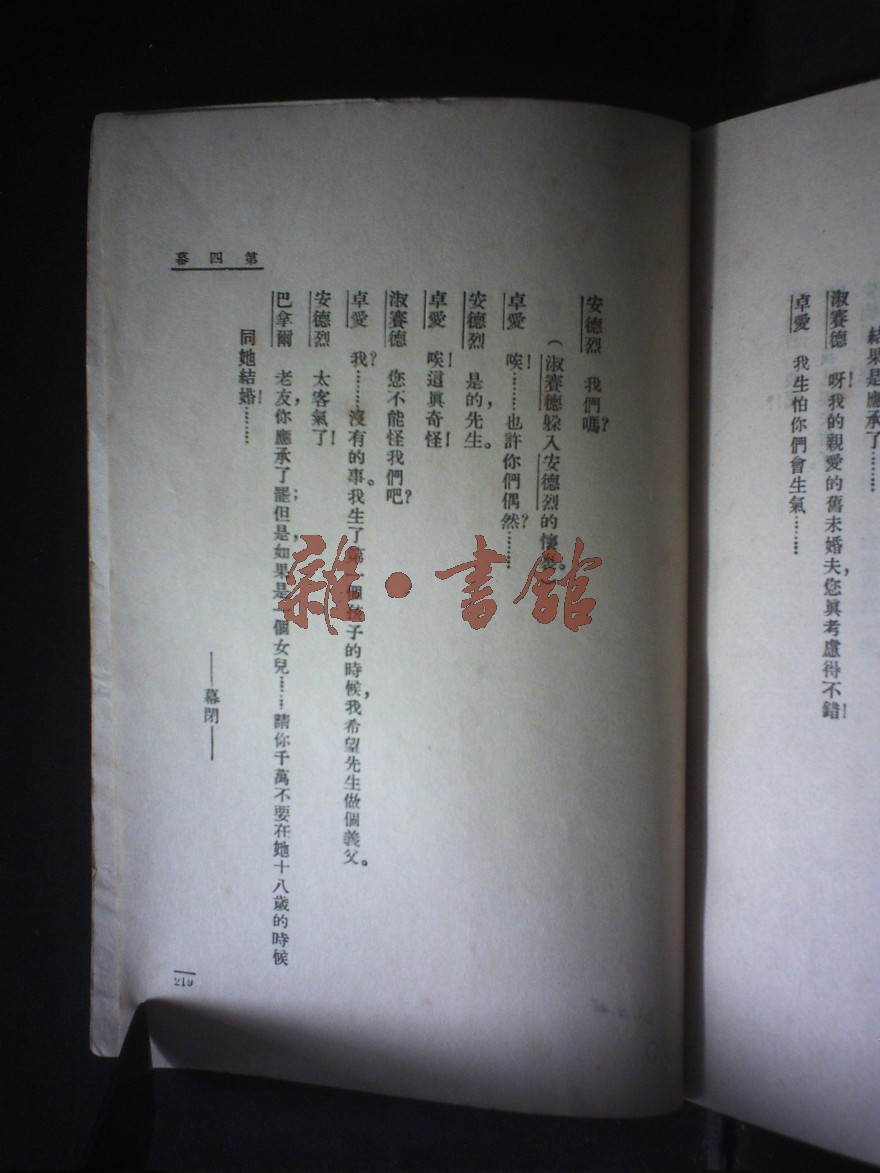 結果是應承了………
淑賽德　呀！我的親愛的舊未婚夫，您眞考慮得不錯！
卓愛　我生怕你們會生氣………
安德烈　我們嗎？
（淑賽德躲入安德烈的懷
卓愛　唉！………也許你們偶然？………
安德烈　是的，先生。
卓愛　唉！這眞奇怪！
淑賽德　您不能怪我們吧？
卓愛　我？………沒有的事。我生了第一個孩子的時候，我希望先生做個義父。
安德烈　太客氣了！
巴拿爾　老友，你應承了罷；但是，如果是一個女兒………請你千萬不要在她十八歲的時候
同她結婚！………
——幕閉——
第四幕
219
雜·書館